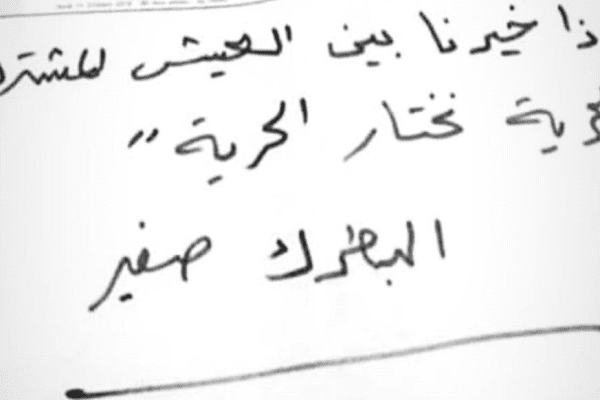 ذا خيرنا بين العيش المشتر
رية نختار الحرية"
البطرك صفير